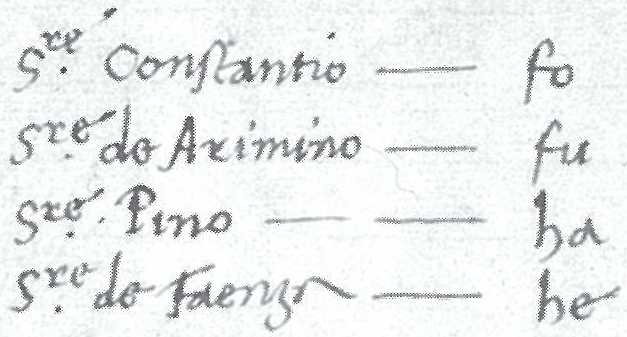 S.re Constantio — fo
S.re de Arimino — fu
S.re Pino — — ha
S.re de Faenza — he